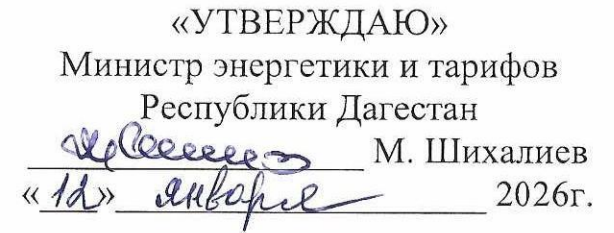 «УТВЕРЖДАЮ»
Министр энергетики и тарифов
Республики Дагестан
М. Шихалиев
«12» января 2026г.